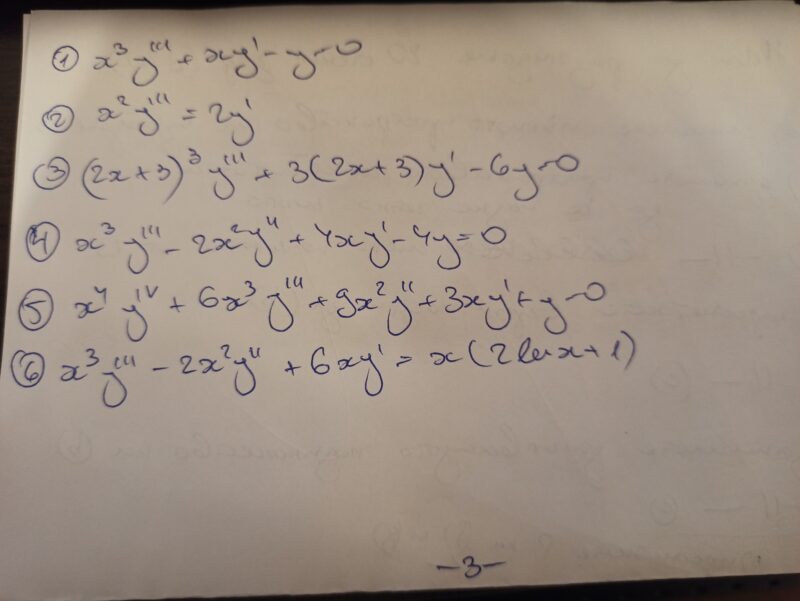 ① x³y''' + xy' - y = 0
② x²y''' = 2y'
③ (2x+3)³y''' + 3(2x+3)y' - 6y = 0
④ x³y''' - 2x²y'' + 4xy' - 4y = 0
⑤ x⁴y^IV + 6x³y''' + 9x²y'' + 3xy' + y = 0
⑥ x³y''' - 2x²y'' + 6xy' = x(2lnx+1)
-3-